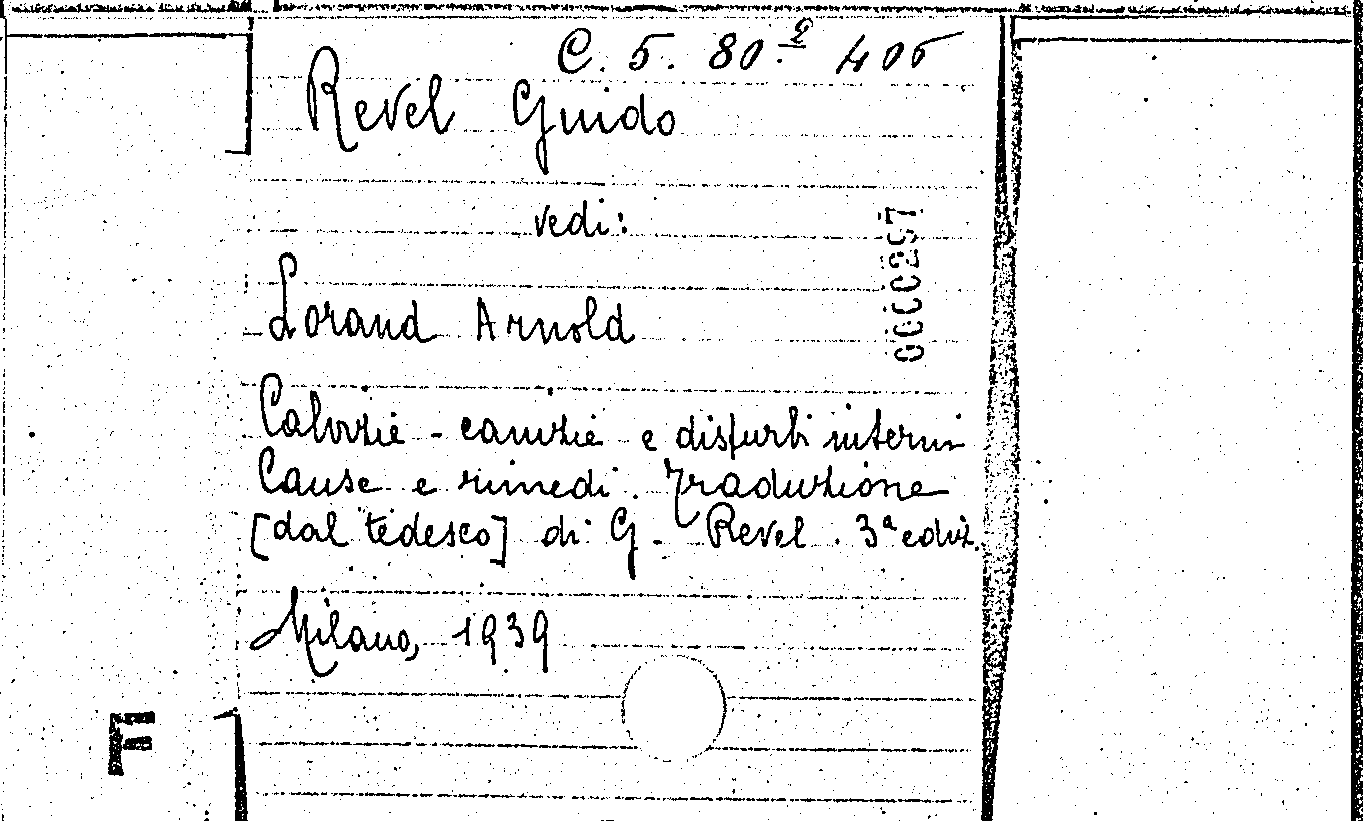 C. 5. 80.2 405
Revel Guido
vedi:
0000297
Lorand Arnold
Calvizie - canizie e disturbi interni
Cause e rimedi. Traduzione
[dal tedesco] di G. Revel. 3ª ediz.
Milano, 1939
F